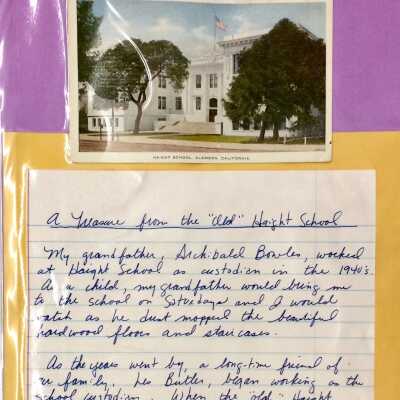 HAIGHT SCHOOL, ALAMEDA, CALIFORNIA
A Treasure from the "Old" Haight School
My grandfather, Archibald Bowles, worked
at Haight School as custodian in the 1940's.
As a child, my grandfather would bring me
to the school on Saturdays and I would
watch as he dust mopped the beautiful
hardwood floors and staircases.
As the years went by, a long-time friend of
our family, Les Butler, began working as the
school custodian. When the "old" Haight